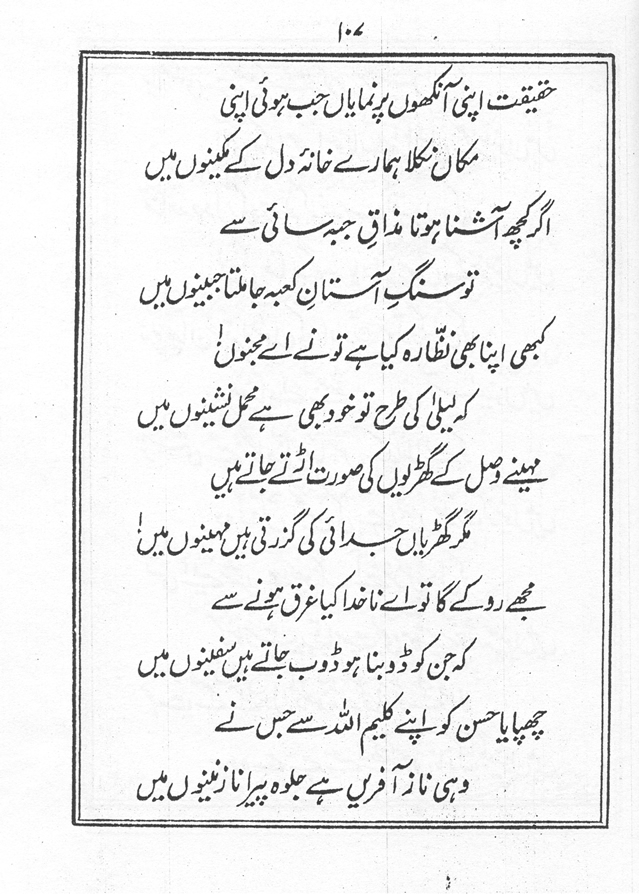 ۱۰۷
حقیقت اپنی آنکھوں پر نمایاں جب ہوئی اپنی
مکاں نکلا ہمارے خانۂ دل کے مکینوں میں
اگر کچھ آشنا ہوتا مذاقِ جبہ سائی سے
تو سنگِ آستانِ کعبہ جا ملتا جبینوں میں
کبھی اپنا بھی نظّارہ کیا ہے تو نے اے مجنوں!
کہ لیلیٰ کی طرح تو خود بھی ہے محمل نشینوں میں
مہینے وصل کے گھڑیوں کی صورت اڑتے جاتے ہیں
مگر گھڑیاں جدائی کی گزرتی ہیں مہینوں میں!
مجھے روکے گا تو اے ناخدا کیا غرق ہونے سے
کہ جن کو ڈوبنا ہو ڈوب جاتے ہیں سفینوں میں
چھپایا حسن کو اپنے کلیم اللہ سے جس نے
وہی ناز آفریں ہے جلوہ پیرا نازنینوں میں